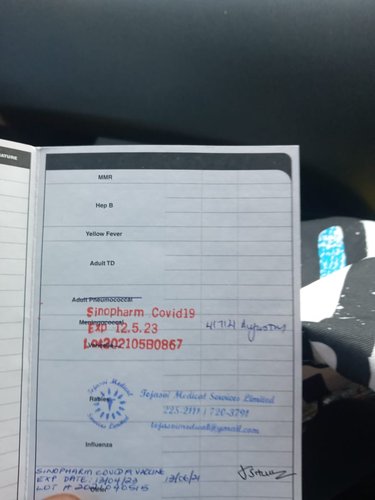 ATURE
MMR
Hep B
Yellow Fever
Adult TD
Adult Pneumococcal
Sinopharm Covid19
Meningococcal
EXP 12.5.23
Lot202105B0867
Rabies
Tejasvi Medical
Services Limited
Tejasvi Medical Services Limited
225-2111 | 720-3791
tejasvimedical@gmail.com
Influenza
SINOPHARM COVID VACCINE
EXP DATE 13/04/23
13/06/21
LOT #